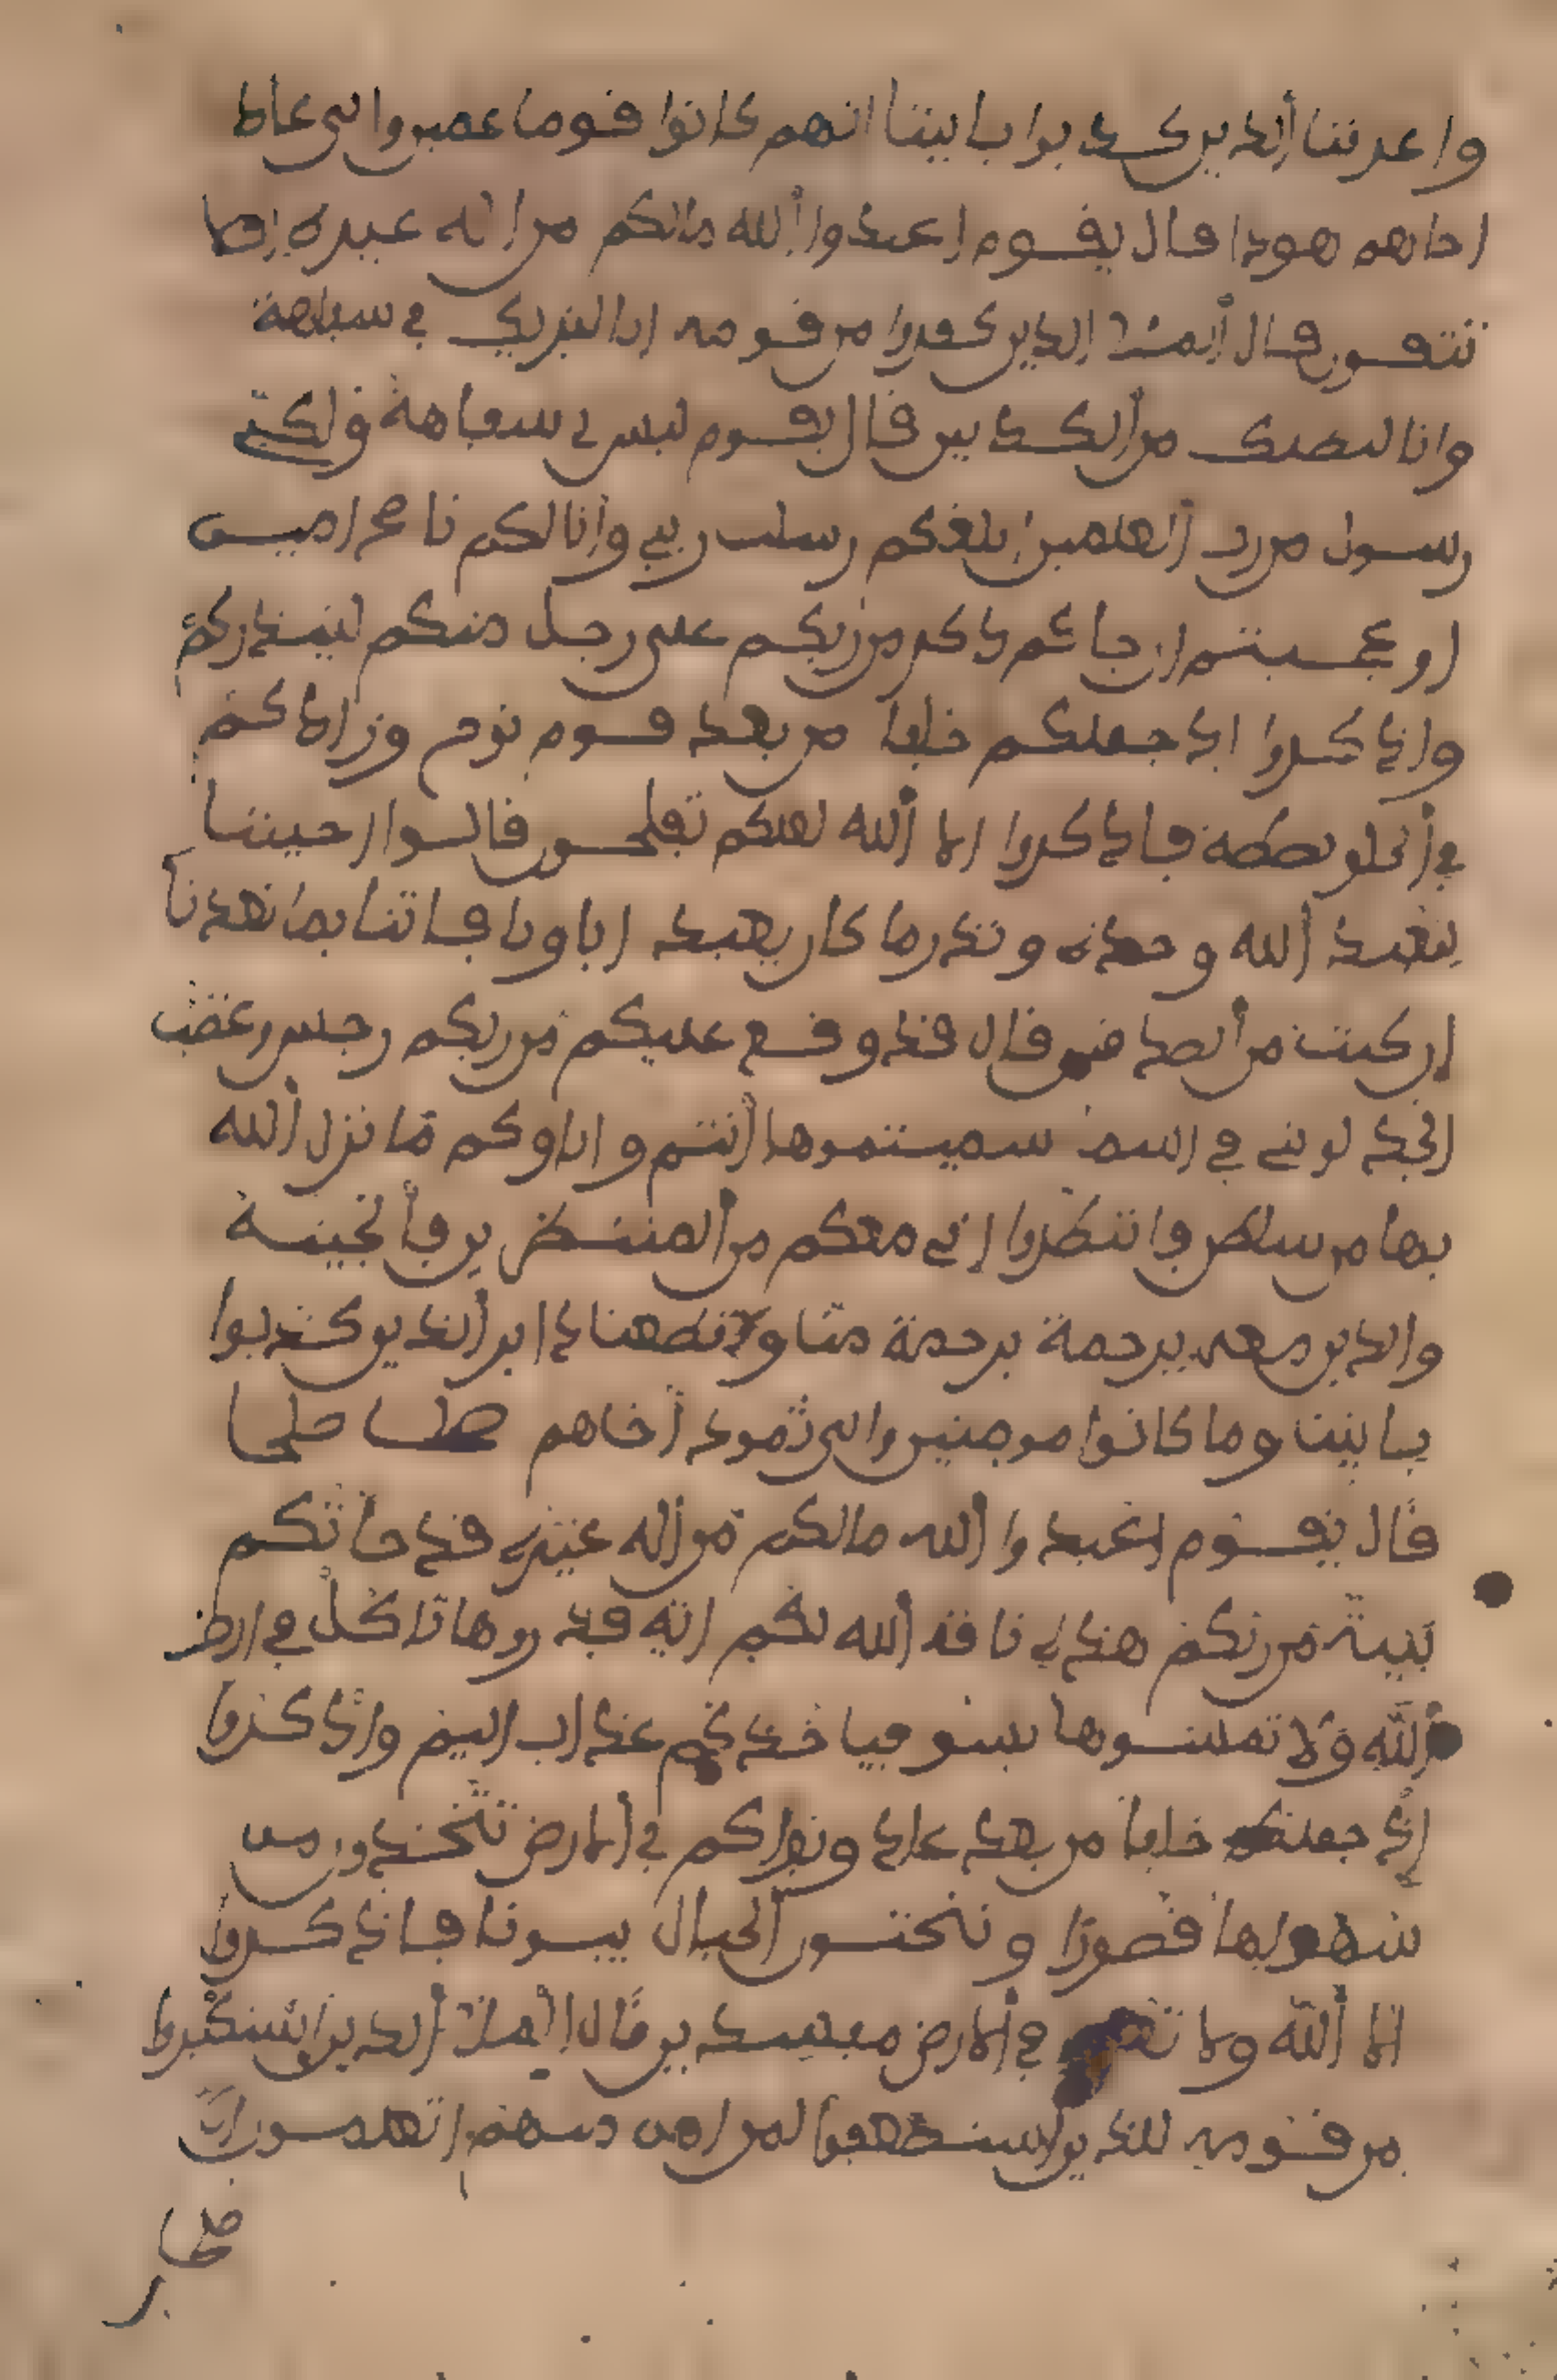 واغرقنا ألذين كذبوا بايتنا انهم كانوا قوما عمين والى عاد
اخاهم هودا قال يقوم اعبدوا ألله مالكم من اله غيره افلا
تتقون قال ألملأ الذين كفروا من قومه انا لنريك في سفاهة
وانا لنظنك من ألكذبين قال يقوم ليس بي سفاهة ولكني
رسول من رب ألعلمين ابلغكم رسلت ربي وانا لكم ناصح امين
او عجبتم ان جاءكم ذكر من ربكم على رجل منكم لينذركم
واذكروا اذ جعلكم خلفا من بعد قوم نوح وزادكم
في ألخلق بصطة فاذكروا الا ألله لعلكم تفلحون قالوا اجيتنا
لنعبد ألله وحده ونذر ما كان يعبد اباونا فاتنا بما تعدنا
ان كنت من ألصدقين قال قد وقع عليكم من ربكم رجس وغضب
اتجدلونني في اسما سميتموها أنتم واباوكم ما نزل ألله
بها من سلطن فانتظروا إني معكم من ألمنتظرين فأنجينه
والذين معه برحمة برحمة منا وقطعنا دابر ألذين كذبوا
بايتنا وما كانوا مومنين والى ثمود أخاهم صلحا
قال يقوم اعبدوا ألله مالكم من أله غيره قد جاتكم
بينة من ربكم هذه ناقة ألله لكم اية فذروها تاكل في ارض
ألله ولا تمسوها بسو فياخذكم عذاب اليم واذكروا
إذ جعلكم خلفا من بعد عاد وبواكم في ألارض تتخذون من
سهولها قصورا وتنحتون ألجبال بيوتا فاذكروا
الا ألله ولا في ألارض مفسدين قال ألملأ ألذين استكبروا
من قومه للذين استضعفوا لمن امن منهم اتعلمون ان
صلحا